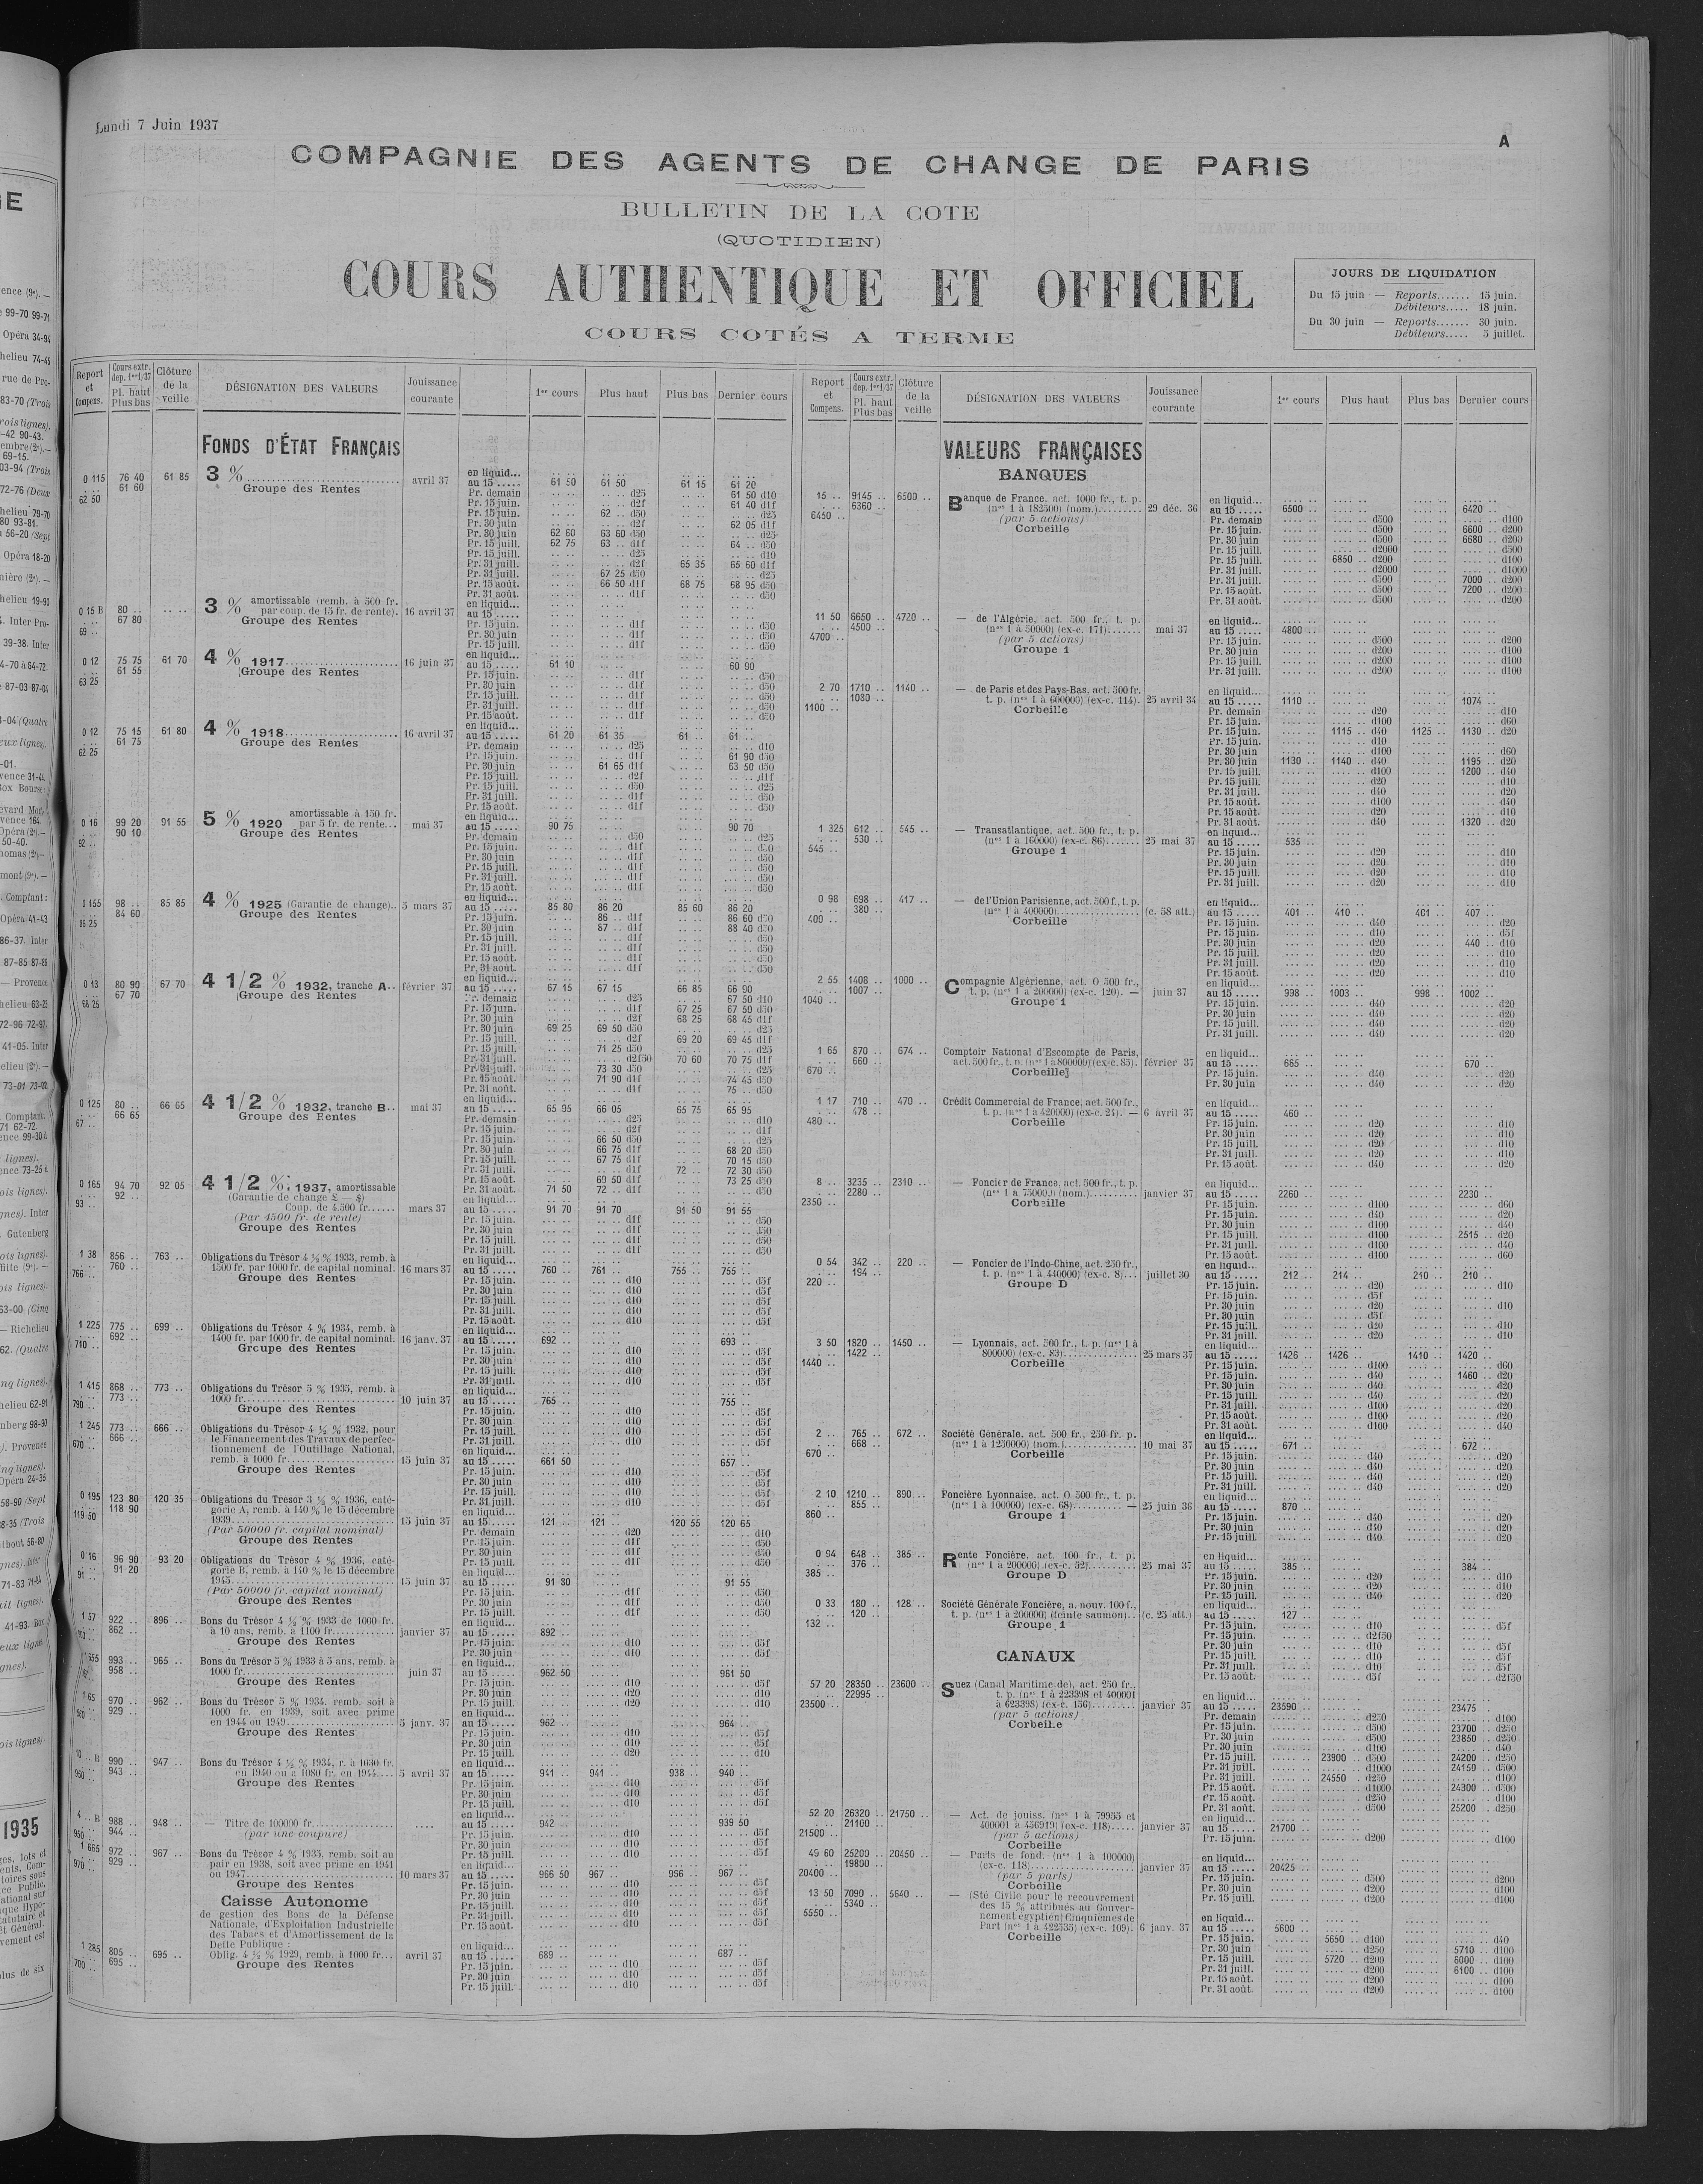 Lundi 7 Juin 1937
A
COMPAGNIE DES AGENTS DE CHANGE DE PARIS
BULLETIN DE LA COTE
(QUOTIDIEN)
COURS AUTHENTIQUE ET OFFICIEL
COURS COTÉS A TERME
JOURS DE LIQUIDATION
Du 15 juin — Reports....... 15 juin.
Débiteurs..... 18 juin.
Du 30 juin — Reports....... 30 juin.
Débiteurs..... 5 juillet.
Report et Compens. | Cours extr. dep. 1er 1/37 Pl. haut Plus bas | Clôture de la veille | DÉSIGNATION DES VALEURS | Jouissance courante | 1er cours | Plus haut | Plus bas | Dernier cours
FONDS D'ÉTAT FRANÇAIS
0 115 76 40 61 85 3 % avril 37
62 50 61 60 Groupe des Rentes
en liquid...
au 15 ..... 61 50 61 50 61 15 61 20
Pr. demain d25 61 50 d10
Pr. 15 juin. d2f 61 40 d1f
Pr. 15 juin. 62 .. d50 d25
Pr. 30 juin d2f 62 05 d1f
Pr. 30 juin 62 60 63 60 d50 d25
Pr. 15 juill. 62 75 63 .. d1f 64 .. d50
Pr. 15 juill. d25 d10
Pr. 31 juill. d2f 65 35 65 60 d1f
Pr. 31 juill. 67 25 d50 d25
Pr. 15 août. 66 50 d1f 68 75 68 95 d50
Pr. 31 août. d1f d50
0 15 B 80 .. 3 % amortissable (remb. à 500 fr.
69 .. 67 80 par coup. de 15 fr. de rente). 16 avril 37
Groupe des Rentes
en liquid...
au 15 .....
Pr. 15 juin. d1f d50
Pr. 30 juin d1f d50
Pr. 15 juill. d1f d50
0 12 75 75 61 70 4 % 1917 16 juin 37
63 25 61 55 Groupe des Rentes
en liquid...
au 15 ..... 61 10 60 90
Pr. 15 juin. d1f d50
Pr. 30 juin d1f d50
Pr. 15 juill. d1f d50
Pr. 31 juill. d1f d50
Pr. 15 août. d1f d50
0 12 75 15 61 80 4 % 1918 16 avril 37
62 25 61 75 Groupe des Rentes
en liquid...
au 15 ..... 61 20 61 35 61 .. 61 ..
Pr. demain d25 d10
Pr. 15 juin. d1f 61 90 d50
Pr. 30 juin 61 65 d1f 63 50 d50
Pr. 15 juill. d2f d1f
Pr. 15 juill. d50 d25
Pr. 31 juill. d1f d50
Pr. 15 août. d1f d50
0 16 99 20 91 55 5 % 1920 amortissable à 150 fr.
92 .. 90 10 par 5 fr. de rente... mai 37
Groupe des Rentes
en liquid...
au 15 ..... 90 75 90 70
Pr. demain d50 d25
Pr. 15 juin. d1f d50
Pr. 30 juin d1f d50
Pr. 15 juill. d1f d50
Pr. 31 juill. d1f d50
Pr. 15 août. d1f d50
0 155 98 .. 85 85 4 % 1925 (Garantie de change).. 5 mars 37
86 25 84 60 Groupe des Rentes
en liquid...
au 15 ..... 85 80 86 20 85 60 86 20
Pr. 15 juin. 86 .. d1f 86 60 d50
Pr. 30 juin 87 .. d1f 88 40 d50
Pr. 15 juill. d1f d50
Pr. 31 juill. d1f d50
Pr. 15 août. d1f d50
Pr. 31 août. d1f d50
0 13 80 90 67 70 4 1/2 % 1932, tranche A.. février 37
68 25 67 70 Groupe des Rentes
en liquid...
au 15 ..... 67 15 67 15 66 85 66 90
Pr. demain d25 67 50 d10
Pr. 15 juin. d1f 67 25 67 50 d50
Pr. 30 juin d2f 68 25 68 45 d1f
Pr. 30 juin 69 25 69 50 d50 d25
Pr. 15 juill. d2f 69 20 69 45 d1f
Pr. 15 juill. 71 25 d50 d25
Pr. 31 juill. d2f50 70 60 70 75 d1f
Pr. 31 juill. 73 30 d50 d25
Pr. 15 août. 71 90 d1f 74 45 d50
Pr. 31 août. d1f 75 .. d50
0 125 80 .. 66 65 4 1/2 % 1932, tranche B.. mai 37
67 .. 66 65 Groupe des Rentes
en liquid...
au 15 ..... 65 95 66 05 65 75 65 95
Pr. demain d25 d10
Pr. 15 juin. d2f d1f
Pr. 15 juin. 66 50 d50 d25
Pr. 30 juin 66 75 d1f 68 20 d50
Pr. 15 juill. 67 75 d1f 70 15 d50
Pr. 31 juill. d1f 72 .. 72 30 d50
Pr. 15 août. 69 50 d1f 73 25 d50
Pr. 31 août. 71 50 72 .. d1f d50
0 165 94 70 92 05 4 1/2 % 1937, amortissable
93 .. 92 .. (Garantie de change £ — $)
Coup. de 4.500 fr...... mars 37
(Par 4500 fr. de rente)
Groupe des Rentes
en liquid...
au 15 ..... 91 70 91 70 91 50 91 55
Pr. 15 juin. d1f d50
Pr. 30 juin d1f d50
Pr. 15 juill. d1f d50
Pr. 31 juill. d1f d50
1 38 856 .. 763 .. Obligations du Trésor 4 ½ % 1933, remb. à
766 .. 760 .. 1500 fr. par 1000 fr. de capital nominal. 16 mars 37
Groupe des Rentes
en liquid...
au 15 ..... 760 .. 761 .. 755 .. 755 ..
Pr. 15 juin. d10 d5f
Pr. 30 juin d10 d5f
Pr. 15 juill. d10 d5f
Pr. 31 juill. d10 d5f
Pr. 15 août. d10 d5f
1 225 775 .. 699 .. Obligations du Trésor 4 % 1934, remb. à
710 .. 692 .. 1400 fr. par 1000 fr. de capital nominal. 16 janv. 37
Groupe des Rentes
en liquid...
au 15 ..... 692 .. 693 ..
Pr. 15 juin. d10 d5f
Pr. 30 juin d10 d5f
Pr. 15 juill. d10 d5f
Pr. 31 juill. d10 d5f
1 415 868 .. 773 .. Obligations du Trésor 5 % 1935, remb. à
790 .. 773 .. 1000 fr. 10 juin 37
Groupe des Rentes
en liquid...
au 15 ..... 765 .. 755 ..
Pr. 15 juin. d10 d5f
Pr. 30 juin d10 d5f
Pr. 15 juill. d10 d5f
Pr. 31 juill. d10 d5f
1 245 773 .. 666 .. Obligations du Trésor 4 ½ % 1932, pour
670 .. 666 .. le Financement des Travaux de perfec-
tionnement de l'Outillage National,
remb. à 1000 fr. 15 juin 37
Groupe des Rentes
en liquid...
au 15 ..... 661 50 657 ..
Pr. 15 juin. d10 d5f
Pr. 30 juin d10 d5f
Pr. 15 juill. d10 d5f
Pr. 31 juill. d10 d5f
0 195 123 80 120 35 Obligations du Tresor 3 ½ % 1936, caté-
119 50 118 90 gorie A, remb. à 140 % le 15 décembre
1939 15 juin 37
(Par 50000 fr. capital nominal)
Groupe des Rentes
en liquid...
au 15 ..... 121 .. 121 .. 120 55 120 65
Pr. demain d20 d10
Pr. 15 juin. d1f d50
Pr. 30 juin d1f d50
Pr. 15 juill. d1f d50
0 16 96 90 93 20 Obligations du Trésor 4 % 1936, caté-
91 .. 91 20 gorie B, remb. à 140 % le 15 décembre
1945 15 juin 37
(Par 50000 fr. capital nominal)
Groupe des Rentes
en liquid...
au 15 ..... 91 30 91 55
Pr. 15 juin. d1f d50
Pr. 30 juin d1f d50
Pr. 15 juill. d1f d50
1 57 922 .. 896 .. Bons du Trésor 4 ½ % 1933 de 1000 fr.
862 .. à 10 ans, remb. à 1100 fr. janvier 37
Groupe des Rentes
en liquid...
au 15 ..... 892 ..
Pr. 15 juin. d10 d5f
Pr. 30 juin d10 d5f
993 .. 965 .. Bons du Trésor 5 % 1933 à 5 ans, remb. à
958 .. 1000 fr. juin 37
Groupe des Rentes
en liquid...
au 15 ..... 962 50 961 50
Pr. 15 juin. d10 d5f
Pr. 30 juin d20 d10
Pr. 15 juill. d20 d10
1 65 970 .. 962 .. Bons du Trésor 5 % 1934, remb. soit à
960 .. 929 .. 1000 fr. en 1939, soit avec prime
en 1944 ou 1949 5 janv. 37
Groupe des Rentes
en liquid...
au 15 ..... 962 .. 964 ..
Pr. 15 juin. d10 d5f
Pr. 30 juin d10 d5f
Pr. 15 juill. d20 d10
10 .. B 990 .. 947 .. Bons du Trésor 4 ½ % 1934, r. à 1030 fr.
950 .. 943 .. en 1940 ou à 1080 fr. en 1944.... 5 avril 37
Groupe des Rentes
en liquid...
au 15 ..... 941 .. 941 .. 938 .. 940 ..
Pr. 15 juin. d10 d5f
Pr. 30 juin d10 d5f
Pr. 15 juill. d10 d5f
4 .. B 988 .. 948 .. — Titre de 100000 fr.
950 .. 944 .. (par une coupure)
en liquid...
au 15 ..... 942 .. 939 50
Pr. 15 juin. d10 d5f
Pr. 30 juin d10 d5f
Pr. 15 juill. d10 d5f
1 665 972 .. 967 .. Bons du Trésor 4 % 1935, remb. soit au
970 .. 929 .. pair en 1938, soit avec prime en 1941
ou 1947 10 mars 37
Groupe des Rentes
en liquid...
au 15 ..... 966 50 967 .. 956 .. 967 ..
Pr. 15 juin. d10 d5f
Pr. 30 juin d10 d5f
Pr. 15 juill. d10 d5f
Pr. 31 juill. d10 d5f
Pr. 15 août. d10 d5f
Caisse Autonome
de gestion des Bons de la Défense
Nationale, d'Exploitation Industrielle
des Tabacs et d'Amortissement de la
Dette Publique :
1 285 805 .. 695 .. Oblig. 4 ½ % 1929, remb. à 1000 fr... avril 37
700 .. 695 .. Groupe des Rentes
en liquid...
au 15 ..... 689 .. 687 ..
Pr. 15 juin. d10 d5f
Pr. 30 juin d10 d5f
Pr. 15 juill. d10 d5f
Report et Compens. | Cours extr. dep. 1er 1/37 Pl. haut Plus bas | Clôture de la veille | DÉSIGNATION DES VALEURS | Jouissance courante | 1er cours | Plus haut | Plus bas | Dernier cours
VALEURS FRANÇAISES
BANQUES
15 .. 9145 .. 6500 .. Banque de France, act. 1000 fr., t. p.
6450 .. 6360 .. (nos 1 à 182500) (nom.)......... 29 déc. 36
(par 5 actions)
Corbeille
en liquid...
au 15 ..... 6500 .. 6420 ..
Pr. demain d500 d100
Pr. 15 juin. d500 6600 .. d200
Pr. 30 juin d500 6680 .. d200
Pr. 15 juill. d2000 d500
Pr. 15 juill. 6850 .. d200 d100
Pr. 31 juill. d2000 d1000
Pr. 31 juill. d500 7000 .. d200
Pr. 15 août. d500 7200 .. d200
Pr. 31 août. d500 d200
11 50 6650 .. 4720 .. — de l'Algérie, act. 500 fr., t. p.
4700 .. 4500 .. (nos 1 à 50000) (ex-c. 171)....... mai 37
(par 5 actions)
Groupe 1
en liquid...
au 15 ..... 4800 ..
Pr. 15 juin. d500 d200
Pr. 30 juin d200 d100
Pr. 15 juill. d200 d100
Pr. 31 juill. d200 d100
2 70 1710 .. 1140 .. — de Paris et des Pays-Bas, act. 500 fr.
1100 .. 1080 .. t. p. (nos 1 à 600000) (ex-c. 114). 25 avril 34
Corbeille
en liquid...
au 15 ..... 1110 .. 1074 ..
Pr. demain d20 d10
Pr. 15 juin. d100 d60
Pr. 15 juin. 1115 .. d40 1125 .. 1130 .. d20
Pr. 15 juin. d10
Pr. 30 juin d100 d60
Pr. 30 juin 1130 .. 1140 .. d40 1195 .. d20
Pr. 15 juill. d100 1200 .. d40
Pr. 15 juill. d20 d10
Pr. 31 juill. d40 d20
Pr. 15 août. d100 d40
Pr. 15 août. d20 d10
Pr. 31 août. d40 1320 .. d20
1 325 612 .. 545 .. — Transatlantique, act. 500 fr., t. p.
545 .. 530 .. (nos 1 à 160000) (ex-c. 86)....... 25 mai 37
Groupe 1
en liquid...
au 15 ..... 535 ..
Pr. 15 juin. d20 d10
Pr. 30 juin d20 d10
Pr. 15 juill. d20 d10
Pr. 31 juill. d20 d10
0 98 698 .. 417 .. — de l'Union Parisienne, act. 500 f., t. p.
400 .. 380 .. (nos 1 à 400000) (c. 58 att.)
Corbeille
en liquid...
au 15 ..... 401 .. 410 .. 401 .. 407 ..
Pr. 15 juin. d40 d20
Pr. 15 juin. d10 d5f
Pr. 30 juin d20 440 .. d10
Pr. 15 juill. d20 d10
Pr. 31 juill. d20 d10
Pr. 15 août. d20 d10
2 55 1408 .. 1000 .. Compagnie Algérienne, act. O 500 fr.,
1040 .. 1007 .. t. p. (nos 1 à 200000) (ex-c. 120). — juin 37
Groupe 1
en liquid...
au 15 ..... 998 .. 1003 .. 998 .. 1002 ..
Pr. 15 juin. d40 d20
Pr. 30 juin d40 d20
Pr. 15 juill. d40 d20
Pr. 31 juill. d40 d20
1 65 870 .. 674 .. Comptoir National d'Escompte de Paris,
670 .. 660 .. act. 500 fr., t. p. (nos 1 à 800000) (ex-c. 85). février 37
Corbeille
en liquid...
au 15 ..... 665 .. 670 ..
Pr. 15 juin. d40 d20
Pr. 30 juin d40 d20
1 17 710 .. 470 .. Crédit Commercial de France, act. 500 fr.,
480 .. 478 .. t. p. (nos 1 à 420000) (ex-c. 24). — 6 avril 37
Corbeille
en liquid...
au 15 ..... 460 ..
Pr. 15 juin. d20 d10
Pr. 30 juin d20 d10
Pr. 15 juill. d20 d10
Pr. 31 juill. d20 d10
Pr. 15 août. d40 d20
8 .. 3235 .. 2310 .. — Foncier de France, act. 500 fr., t. p.
2350 .. 2280 .. (nos 1 à 750000) (nom.).......... janvier 37
Corbeille
en liquid...
au 15 ..... 2260 .. 2230 ..
Pr. 15 juin. d100 d60
Pr. 15 juin. d40 d20
Pr. 30 juin d100 d40
Pr. 15 juill. d100 2515 .. d20
Pr. 31 juill. d100 d40
Pr. 15 août. d100 d60
0 54 342 .. 220 .. — Foncier de l'Indo-Chine, act. 250 fr.,
220 .. 194 .. t. p. (nos 1 à 440000) (ex-c. 8)... juillet 30
Groupe D
en liquid...
au 15 ..... 212 .. 214 .. 210 .. 210 ..
Pr. 15 juin. d20 d10
Pr. 15 juin. d5f
Pr. 30 juin d20 d10
Pr. 30 juin d5f
Pr. 15 juill. d20 d10
Pr. 31 juill. d20 d10
3 50 1820 .. 1450 .. — Lyonnais, act. 500 fr., t. p. (nos 1 à
1440 .. 1422 .. 800000) (ex-c. 83) 25 mars 37
Corbeille
en liquid...
au 15 ..... 1426 .. 1426 .. 1410 .. 1420 ..
Pr. 15 juin. d100 d60
Pr. 15 juin. d40 1460 .. d20
Pr. 30 juin d40 d20
Pr. 15 juill. d40 d20
Pr. 31 juill. d100 d20
Pr. 15 août. d100 d20
Pr. 31 août. d100 d40
2 .. 765 .. 672 .. Société Générale, act. 500 fr., 250 fr. p.
670 .. 668 .. (nos 1 à 1250000) (nom.) 10 mai 37
Corbeille
en liquid...
au 15 ..... 671 .. 672 ..
Pr. 15 juin. d40 d20
Pr. 30 juin d40 d20
Pr. 15 juill. d40 d20
Pr. 31 juill. d40 d20
2 10 1210 .. 890 .. Foncière Lyonnaise, act. O 500 fr., t. p.
860 .. 855 .. (nos 1 à 100000) (ex-c. 68).......... — 25 juin 36
Groupe 1
en liquid...
au 15 ..... 870 ..
Pr. 15 juin. d40 d20
Pr. 30 juin d40 d20
Pr. 15 juill. d40 d20
0 94 648 .. 385 .. Rente Foncière, act. 100 fr., t. p.
385 .. 376 .. (nos 1 à 200000) (ex-c. 52)......... 25 mai 37
Groupe D
en liquid...
au 15 ..... 385 .. 384 ..
Pr. 15 juin. d20 d10
Pr. 30 juin d20 d10
Pr. 15 juill. d40 d20
0 33 180 .. 128 .. Société Générale Foncière, a. nouv. 100 f.,
132 .. 120 .. t. p. (nos 1 à 200000) (teinte saumon).. (c. 25 att.)
Groupe 1
en liquid...
au 15 ..... 127 ..
Pr. 15 juin. d10 d5f
Pr. 15 juin. d2f50
Pr. 30 juin d10 d5f
Pr. 15 juill. d10 d5f
Pr. 31 juill. d10 d5f
Pr. 15 août. d5f d2f50
CANAUX
57 20 28350 .. 23600 .. Suez (Canal Maritime de), act. 250 fr.,
23500 .. 22995 .. t. p. (nos 1 à 223398 et 400001
à 623398) (ex-c. 156)......... janvier 37
(par 5 actions)
Corbeille
en liquid...
au 15 ..... 23590 .. 23475 ..
Pr. demain d250 d100
Pr. 15 juin. d500 23700 .. d250
Pr. 30 juin d500 23850 .. d250
Pr. 30 juin d100 d40
Pr. 15 juill. 23900 .. d500 24200 .. d250
Pr. 31 juill. d1000 24150 .. d500
Pr. 31 juill. 24550 .. d250 d100
Pr. 15 août. d1000 24300 .. d500
Pr. 15 août. d250 d100
Pr. 31 août. d500 25200 .. d250
52 20 26320 .. 21750 .. — Act. de jouiss. (nos 1 à 79955 et
21500 .. 21100 .. 400001 à 456919) (ex-c. 118)..... janvier 37
(par 5 actions)
Corbeille
en liquid...
au 15 ..... 21700 ..
Pr. 15 juin. d200 d100
49 60 25200 .. 20450 .. — Parts de fond. (nos 1 à 100000)
20400 .. 19800 .. (ex-c. 118) janvier 37
(par 5 parts)
Corbeille
en liquid...
au 15 ..... 20425 ..
Pr. 15 juin. d500 d200
Pr. 30 juin d200 d100
Pr. 15 juill. d200 d100
13 50 7090 .. 5640 .. — (Sté Civile pour le recouvrement
5550 .. 5340 .. des 15 % attribués au Gouver-
nement égyptien) Cinquièmes de
Part (nos 1 à 422335) (ex-c. 109). 6 janv. 37
Corbeille
en liquid...
au 15 ..... 5600 ..
Pr. 15 juin. 5650 .. d100 d40
Pr. 30 juin d250 5710 .. d100
Pr. 15 juill. 5720 .. d200 6000 .. d100
Pr. 31 juill. d200 6100 .. d100
Pr. 15 août. d200 d100
Pr. 31 août. d200 d100